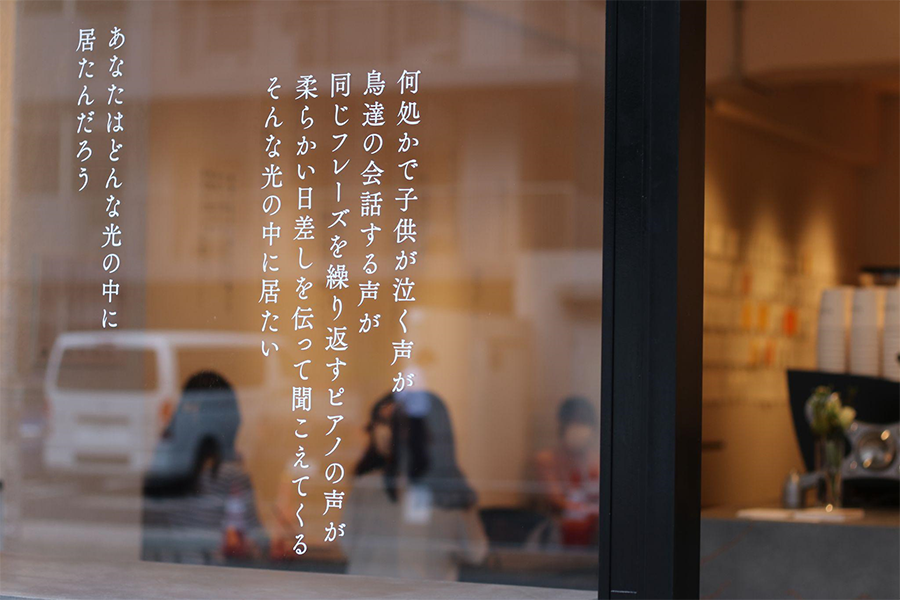 何処かで子供が泣く声が
鳥達の会話する声が
同じフレーズを繰り返すピアノの声が
柔らかい日差しを伝って聞こえてくる
そんな光の中に居たい
あなたはどんな光の中に
居たんだろう